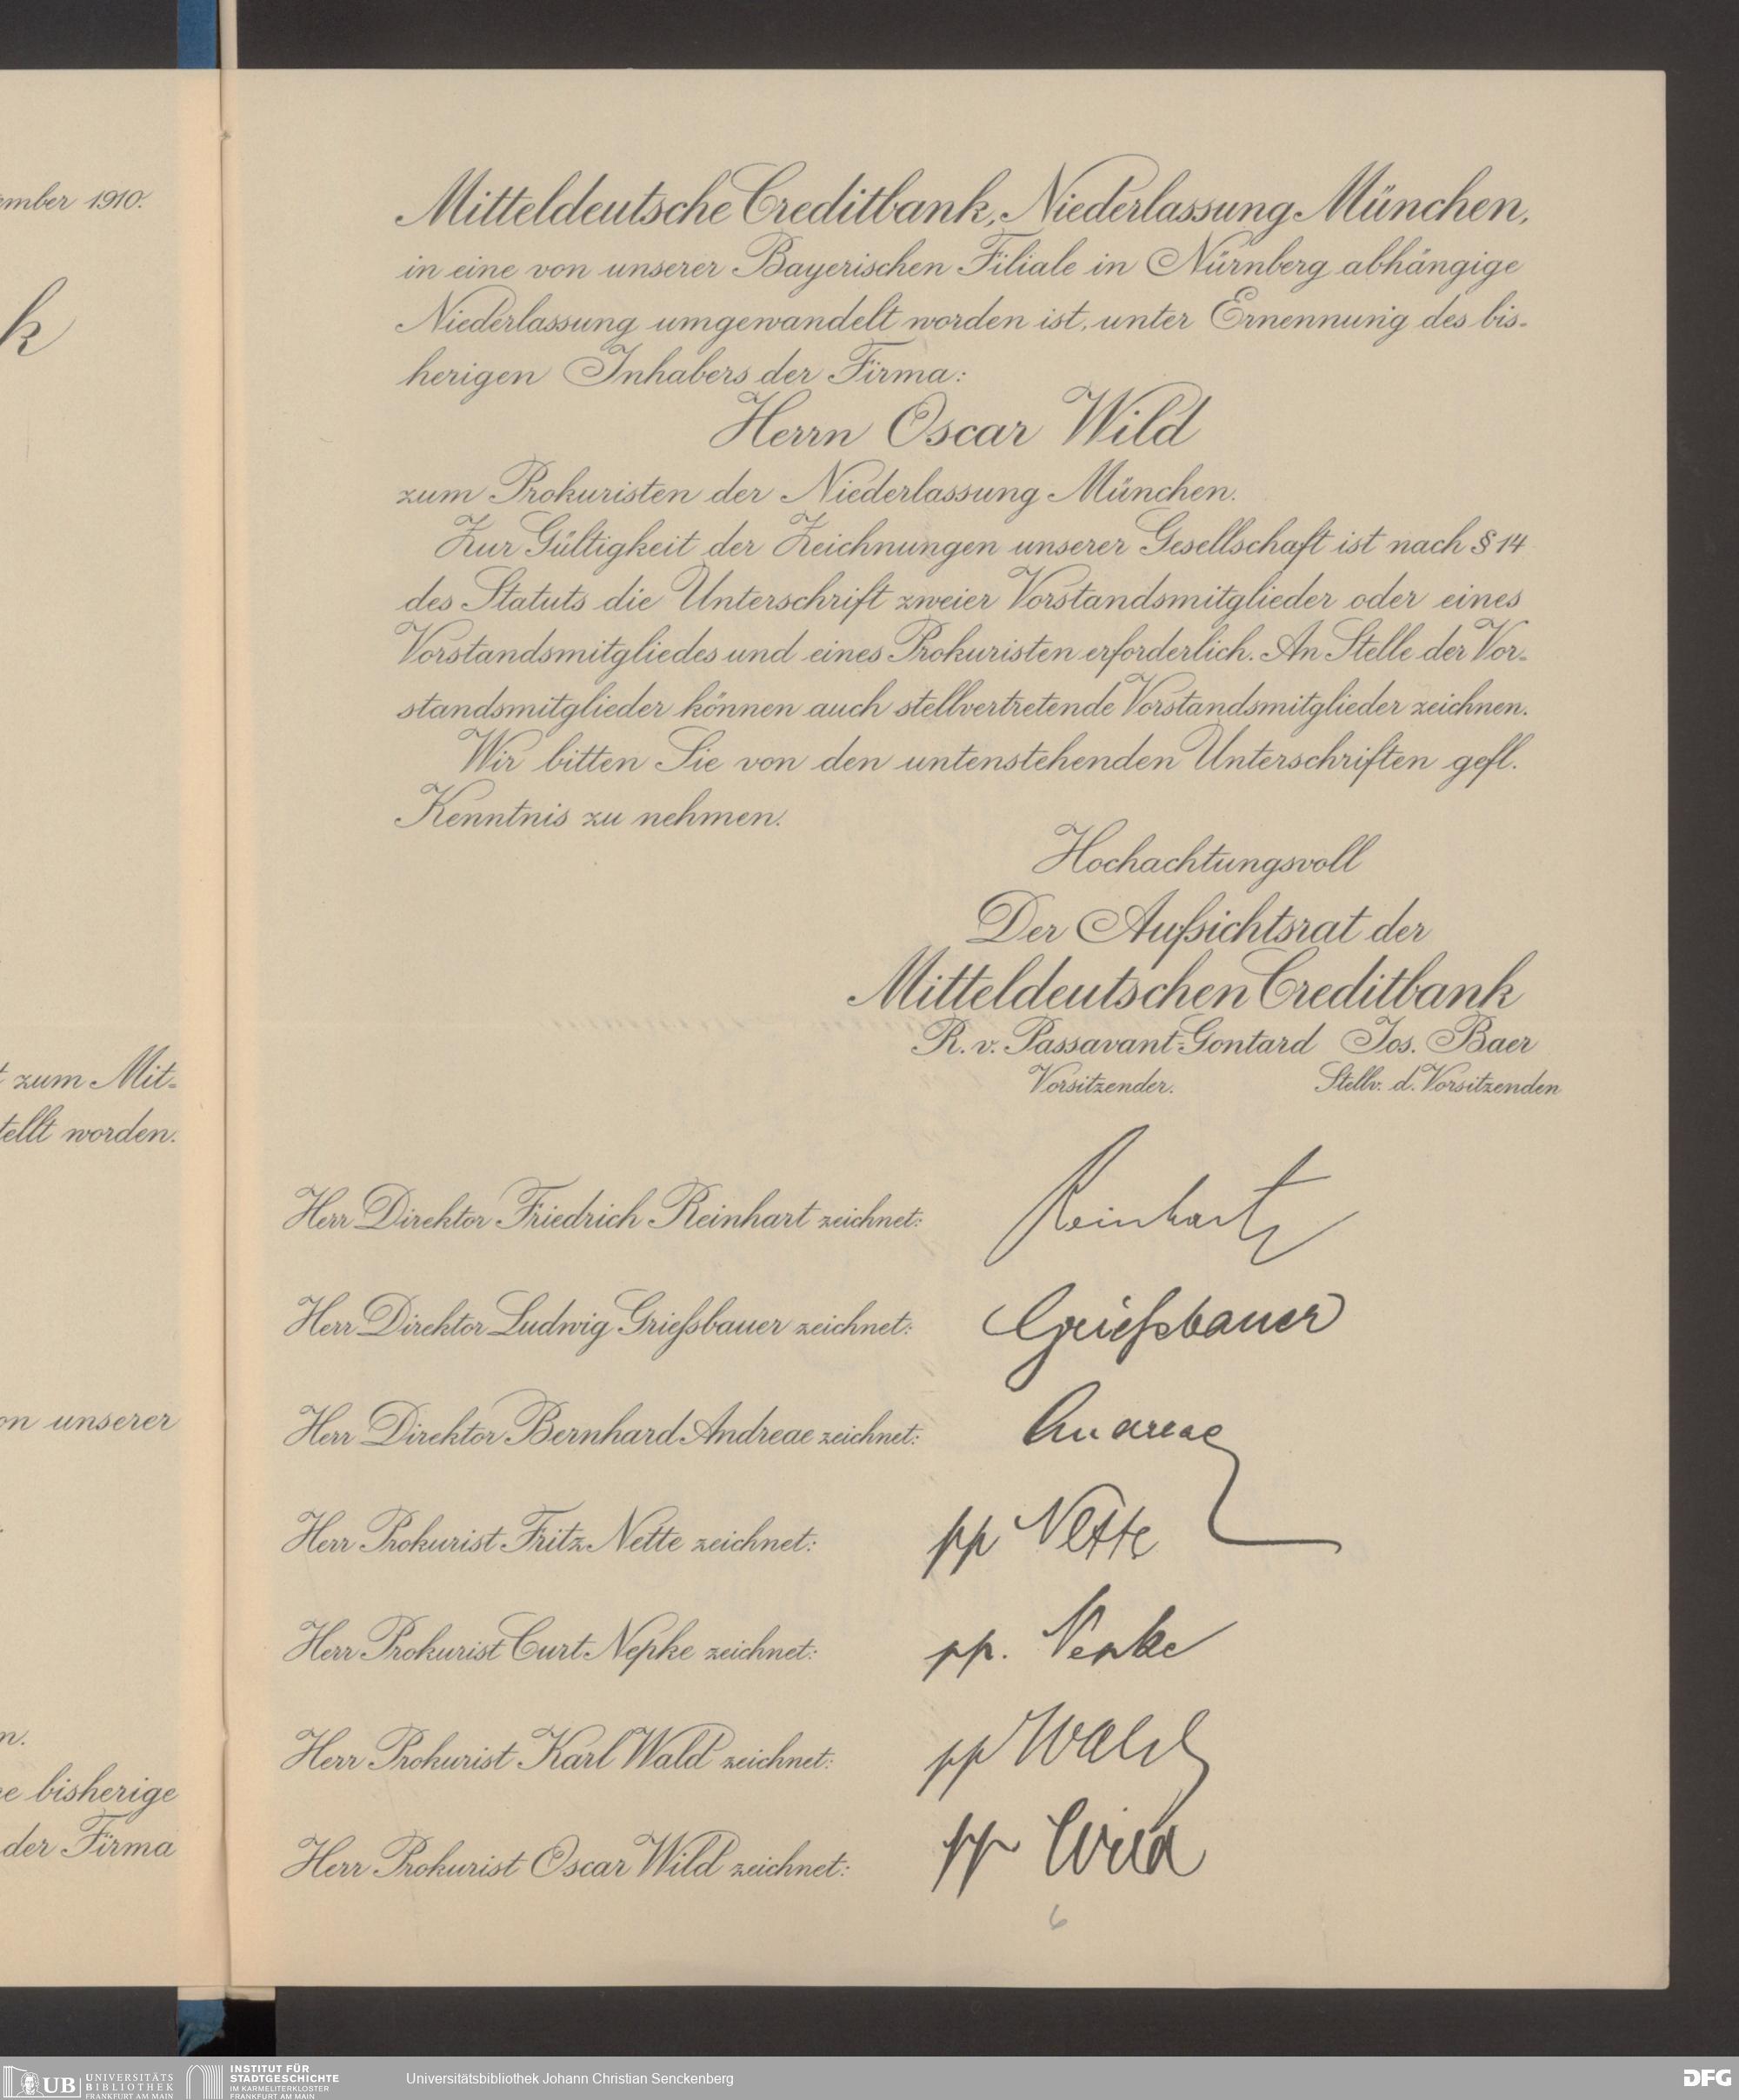 ember 1910.
k
t zum Mit-
tellt worden.
on unserer
n.
e bisherige
der Firma
Mitteldeutsche Creditbank, Niederlassung München,
in eine von unserer Bayerischen Filiale in Nürnberg abhängige
Niederlassung umgewandelt worden ist, unter Ernennung des bis-
herigen Inhabers der Firma:
Herrn Oscar Wild
zum Prokuristen der Niederlassung München.
Zur Gültigkeit der Zeichnungen unserer Gesellschaft ist nach § 14
des Statuts die Unterschrift zweier Vorstandsmitglieder oder eines
Vorstandsmitgliedes und eines Prokuristen erforderlich. An Stelle der Vor-
standsmitglieder können auch stellvertretende Vorstandsmitglieder zeichnen.
Wir bitten Sie von den untenstehenden Unterschriften gefl.
Kenntnis zu nehmen.
Hochachtungsvoll
Der Aufsichtsrat der
Mitteldeutschen Creditbank
R. v. Passavant-Gontard Jos. Baer
Vorsitzender. Stellv. d. Vorsitzenden
Herr Direktor Friedrich Reinhart zeichnet: Reinhart
Herr Direktor Ludwig Grießbauer zeichnet: Grießbauer
Herr Direktor Bernhard Andreae zeichnet: Andreae
Herr Prokurist Fritz Nette zeichnet: pp Nette
Herr Prokurist Curt Nepke zeichnet: pp. Nepke
Herr Prokurist Karl Wald zeichnet: pp Wald
Herr Prokurist Oscar Wild zeichnet: pp Wild
6
UB UNIVERSITÄTS
BIBLIOTHEK
FRANKFURT AM MAIN
INSTITUT FÜR
STADTGESCHICHTE
IM KARMELITERKLOSTER
FRANKFURT AM MAIN
Universitätsbibliothek Johann Christian Senckenberg
DFG